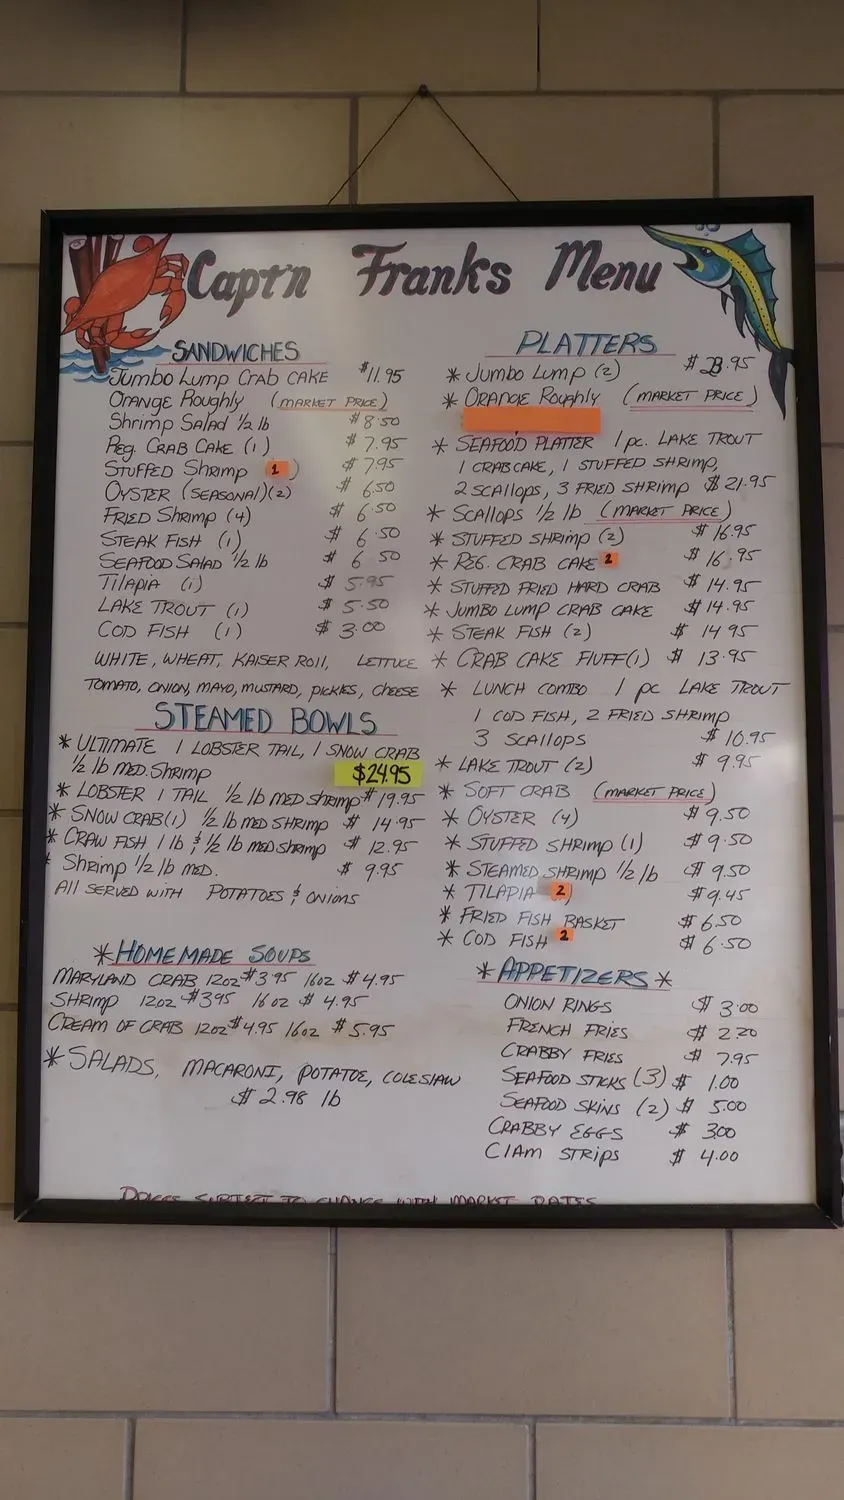 Capt'n Franks Menu
SANDWICHES
Jumbo Lump Crab CAKE $11.95
ORANGE ROUGHLY (MARKET PRICE)
Shrimp SALAD 1/2 lb $8.50
REG. CRAB CAKE (1) $7.95
STUFFED Shrimp 1) $7.95
OYSTER (SEASONAL)(2) $6.50
FRIED Shrimp (4) $6.50
STEAK FISH (1) $6.50
SEAFOOD SALAD 1/2 lb $6.50
TILAPIA (1) $5.95
LAKE TROUT (1) $5.50
COD FISH (1) $3.00
WHITE, WHEAT, KAISER ROLL, LETTUCE
TOMATO, ONION, MAYO, MUSTARD, PICKLES, CHEESE
STEAMED BOWLS
* ULTIMATE 1 LOBSTER TAIL, 1 SNOW CRAB
1/2 lb MED. Shrimp $24.95
* LOBSTER 1 TAIL 1/2 lb MED Shrimp $19.95
* SNOW CRAB(1) 1/2 lb MED SHRIMP $14.95
* CRAW FISH 1 lb & 1/2 lb MED SHRIMP $12.95
* Shrimp 1/2 lb MED. $9.95
All SERVED WITH POTATOES & ONIONS
*HOMEMADE SOUPS
MARYLAND CRAB 12oz $3.95 16oz $4.95
SHRIMP 12oz $3.95 16oz $4.95
CREAM OF CRAB 12oz $4.95 16oz $5.95
*SALADS, MACARONI, POTATOE, COLESLAW
$2.98 lb
PLATTERS
* JUMBO LUMP (2) $23.95
* ORANGE ROUGHLY (MARKET PRICE)
* SEAFOOD PLATTER 1 pc. LAKE TROUT
1 CRABCAKE, 1 STUFFED SHRIMP,
2 SCALLOPS, 3 FRIED SHRIMP $21.95
* SCALLOPS 1/2 lb (MARKET PRICE)
* STUFFED SHRIMP (2) $16.95
* REG. CRAB CAKE 2 $16.95
* STUFFED FRIED HARD CRAB $14.95
* JUMBO LUMP CRAB CAKE $14.95
* STEAK FISH (2) $14.95
* CRAB CAKE FLUFF(1) $13.95
* LUNCH COMBO 1 pc LAKE TROUT
1 COD FISH, 2 FRIED SHRIMP
3 SCALLOPS $10.95
* LAKE TROUT (2) $9.95
* SOFT CRAB (MARKET PRICE)
* OYSTER (4) $9.50
* STUFFED SHRIMP (1) $9.50
* STEAMED SHRIMP 1/2 lb $9.50
* TILAPIA 2 $9.45
* FRIED FISH BASKET $6.50
* COD FISH 2 $6.50
*APPETIZERS*
ONION RINGS $3.00
FRENCH FRIES $2.20
CRABBY FRIES $7.95
SEAFOOD STICKS (3) $1.00
SEAFOOD SKINS (2) $5.00
CRABBY EGGS $3.00
CLAM STRIPS $4.00
PRICES SUBJECT TO CHANGE WITH MARKET RATES